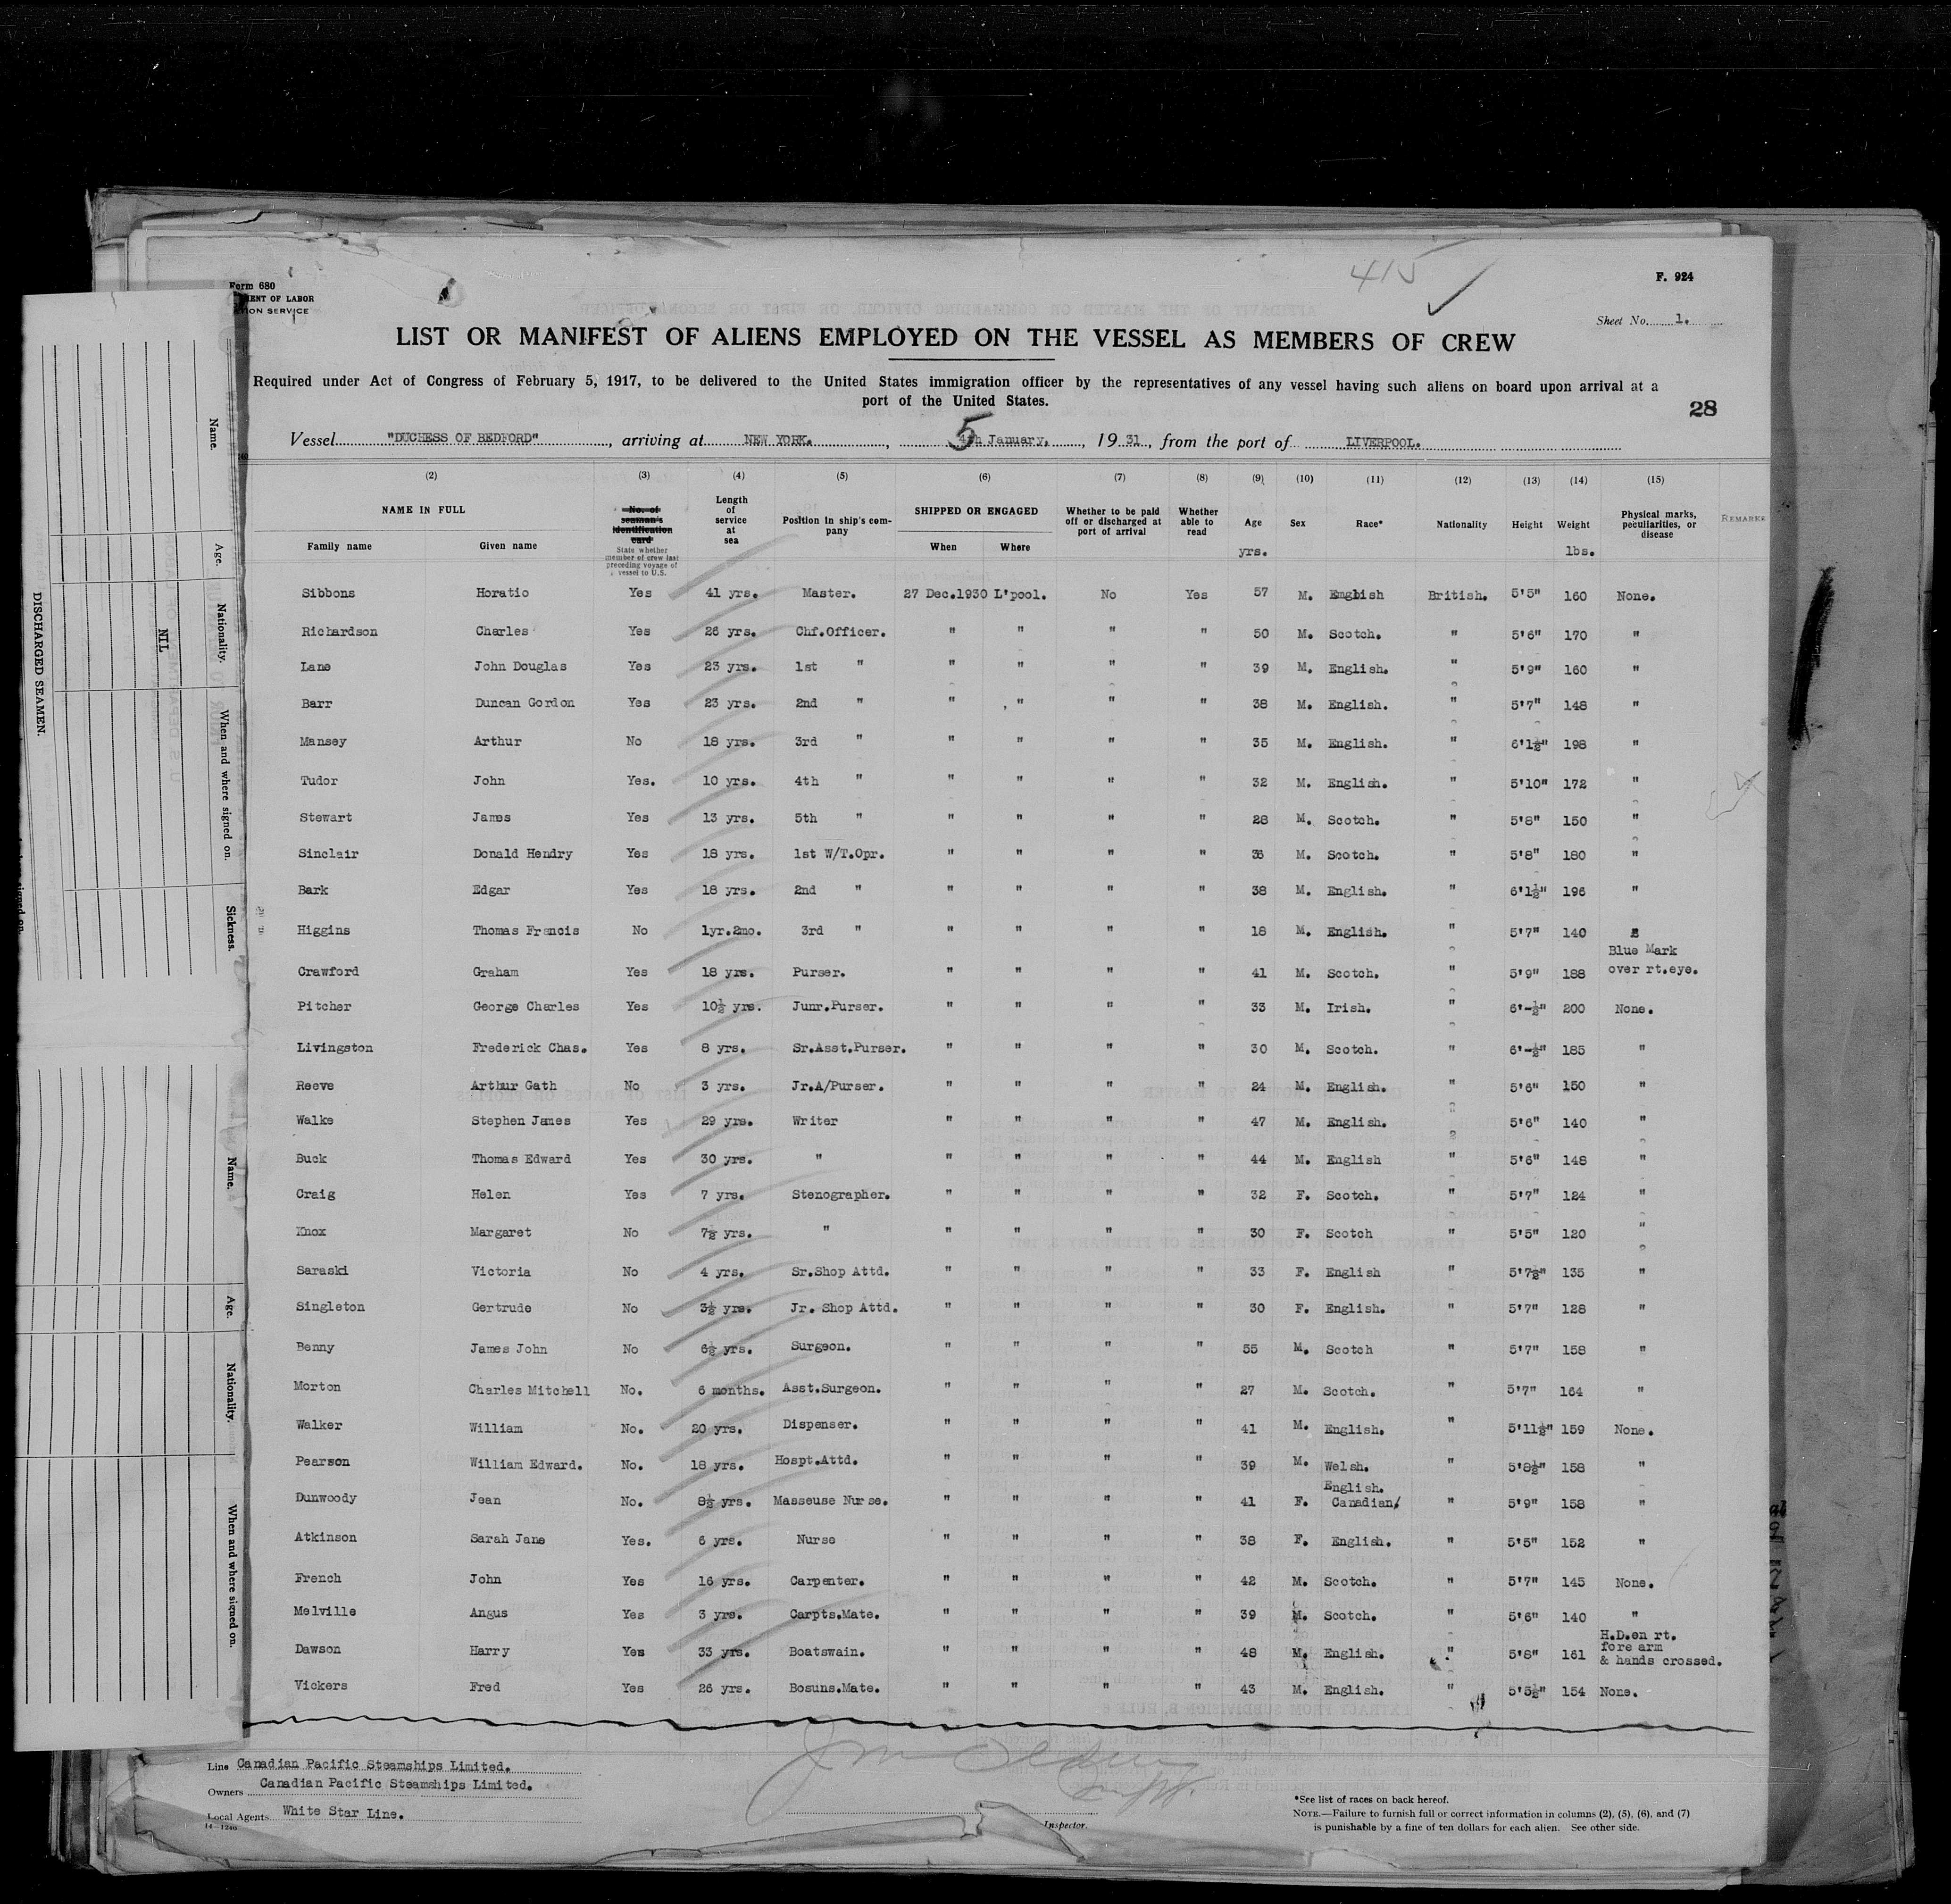 415 ✓
Form 680
F. 924
MENT OF LABOR
TION SERVICE
Sheet No. 1.
LIST OR MANIFEST OF ALIENS EMPLOYED ON THE VESSEL AS MEMBERS OF CREW
Required under Act of Congress of February 5, 1917, to be delivered to the United States immigration officer by the representatives of any vessel having such aliens on board upon arrival at a
port of the United States.
28
Vessel "DUCHESS OF BEDFORD", arriving at NEW YORK., 5 4th January, 1931, from the port of LIVERPOOL.
(2) (3) (4) (5) (6) (7) (8) (9) (10) (11) (12) (13) (14) (15)
NAME IN FULL No. of seaman's identification card Length of service at sea Position in ship's company SHIPPED OR ENGAGED Whether to be paid off or discharged at port of arrival Whether able to read Age Sex Race* Nationality Height Weight Physical marks, peculiarities, or disease REMARKS
Family name Given name State whether member of crew last preceding voyage of vessel to U.S. When Where yrs. lbs.
Sibbons Horatio Yes 41 yrs. Master. 27 Dec.1930 L'pool. No Yes 57 M. English British. 5'5" 160 None.
Richardson Charles Yes 26 yrs. Chf.Officer. " " " " 50 M. Scotch. " 5'6" 170 "
Lane John Douglas Yes 23 yrs. 1st " " " " " 39 M. English. " 5'9" 160 "
Barr Duncan Gordon Yes 23 yrs. 2nd " " " " " 38 M. English. " 5'7" 148 "
Mansey Arthur No 18 yrs. 3rd " " " " " 35 M. English. " 6'1½" 198 "
Tudor John Yes. 10 yrs. 4th " " " " " 32 M. English. " 5'10" 172 "
Stewart James Yes 13 yrs. 5th " " " " " 28 M. Scotch. " 5'8" 150 "
Sinclair Donald Hendry Yes 18 yrs. 1st W/T.Opr. " " " " 36 M. Scotch. " 5'8" 180 "
Bark Edgar Yes 18 yrs. 2nd " " " " " 38 M. English. " 6'1½" 196 "
Higgins Thomas Francis No 1yr.2mo. 3rd " " " " " 18 M. English. " 5'7" 140
Blue Mark
Crawford Graham Yes 18 yrs. Purser. " " " " 41 M. Scotch. " 5'9" 188 over rt.eye.
Pitcher George Charles Yes 10½ yrs. Junr.Purser. " " " " 33 M. Irish. " 6'-½" 200 None.
Livingston Frederick Chas. Yes 8 yrs. Sr.Asst.Purser. " " " " 30 M. Scotch. " 6'-½" 185 "
Reeve Arthur Gath No 3 yrs. Jr.A/Purser. " " " " 24 M. English. " 5'6" 150 "
Walke Stephen James Yes 29 yrs. Writer " " " " 47 M. English. " 5'6" 140 "
Buck Thomas Edward Yes 30 yrs. " " " " " 44 M. English " 5'6" 148 "
Craig Helen Yes 7 yrs. Stenographer. " " " " 32 F. Scotch. " 5'7" 124 "
Knox Margaret No 7½ yrs. " " " " " 30 F. Scotch " 5'5" 120 "
Saraski Victoria No 4 yrs. Sr.Shop Attd. " " " " 33 F. English " 5'7½" 135 "
Singleton Gertrude No 3½ yrs. Jr. Shop Attd. " " " " 30 F. English. " 5'7" 128 "
Benny James John No 6½ yrs. Surgeon. " " " " 55 M. Scotch " 5'7" 158 "
Morton Charles Mitchell No. 6 months. Asst.Surgeon. " " " " 27 M. Scotch. " 5'7" 164 "
Walker William No. 20 yrs. Dispenser. " " " " 41 M. English. " 5'11½" 159 None.
Pearson William Edward. No. 18 yrs. Hospt.Attd. " " " " 39 M. Welsh. " 5'8½" 158 "
English.
Dunwoody Jean No. 8½ yrs. Masseuse Nurse. " " " " 41 F. Canadian/ " 5'9" 158 "
Atkinson Sarah Jane Yes. 6 yrs. Nurse " " " " 38 F. English. " 5'5" 152 "
French John Yes 16 yrs. Carpenter. " " " " 42 M. Scotch. " 5'7" 145 None.
Melville Angus Yes 3 yrs. Carpts.Mate. " " " " 39 M. Scotch. " 5'6" 140 "
H.D.on rt.
Dawson Harry Yes 33 yrs. Boatswain. " " " " 48 M. English. " 5'8" 161 fore arm
& hands crossed.
Vickers Fred Yes 26 yrs. Bosuns.Mate. " " " " 43 M. English. " 5'5½" 154 None.
Line Canadian Pacific Steamships Limited.
Owners Canadian Pacific Steamships Limited.
Local Agents White Star Line.
14—1240
Inspector.
*See list of races on back hereof.
NOTE.—Failure to furnish full or correct information in columns (2), (5), (6), and (7)
is punishable by a fine of ten dollars for each alien. See other side.
DISCHARGED SEAMEN.
NIL
Name.
Age.
Nationality.
When and where signed on.
Sickness.
Name.
Age.
Nationality.
When and where signed on.